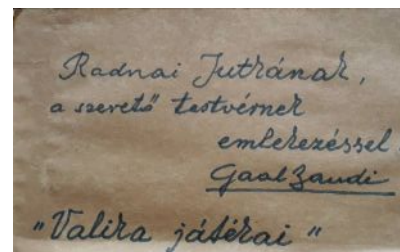 Radnai Jutkának,
a szerető testvérnek
emlékezéssel
Gaal Sandi
"Valika játékai"